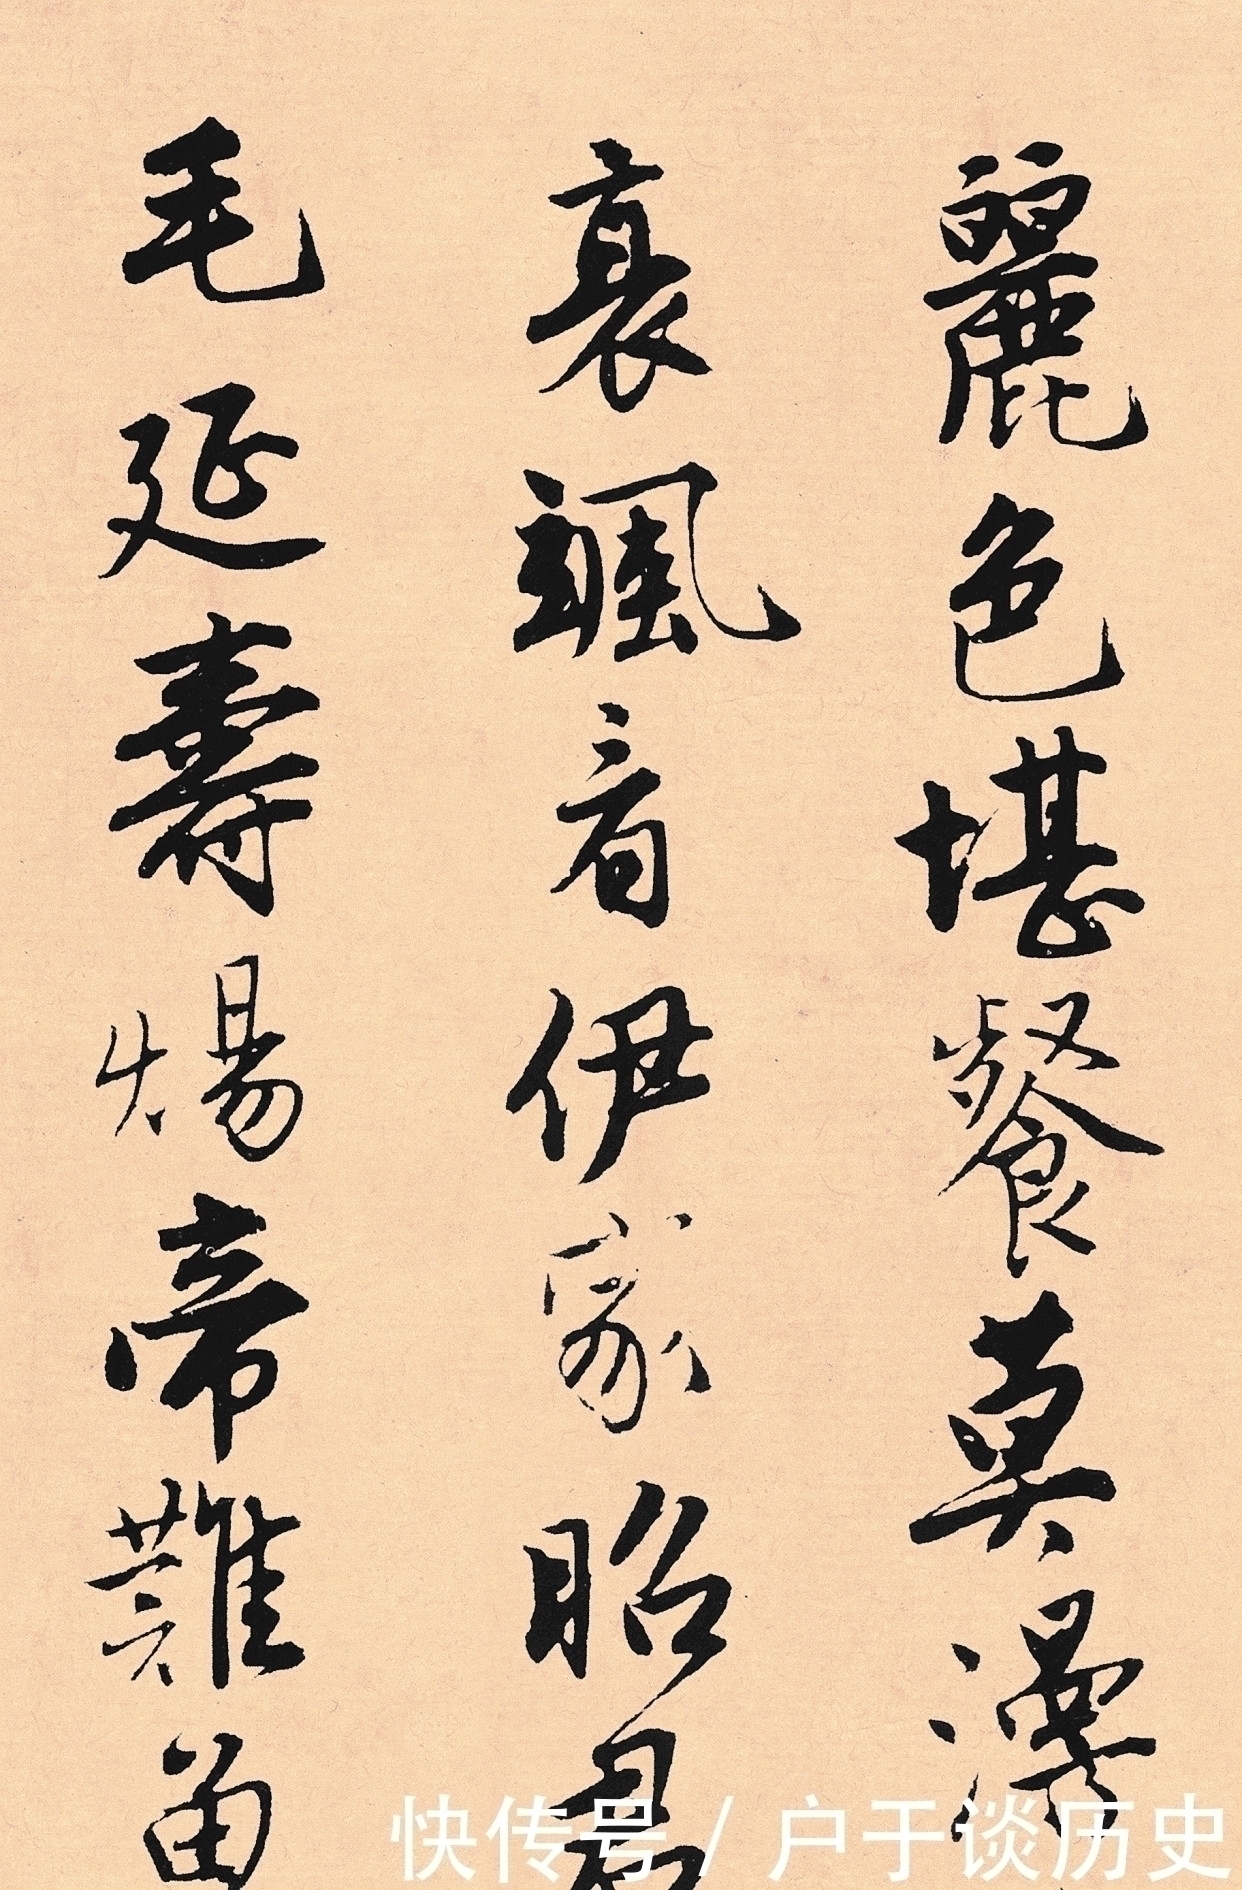 麗色堪餐莫漫
衰颯音伊家昭君
毛延壽煬帝難留
快传号/户于谈历史